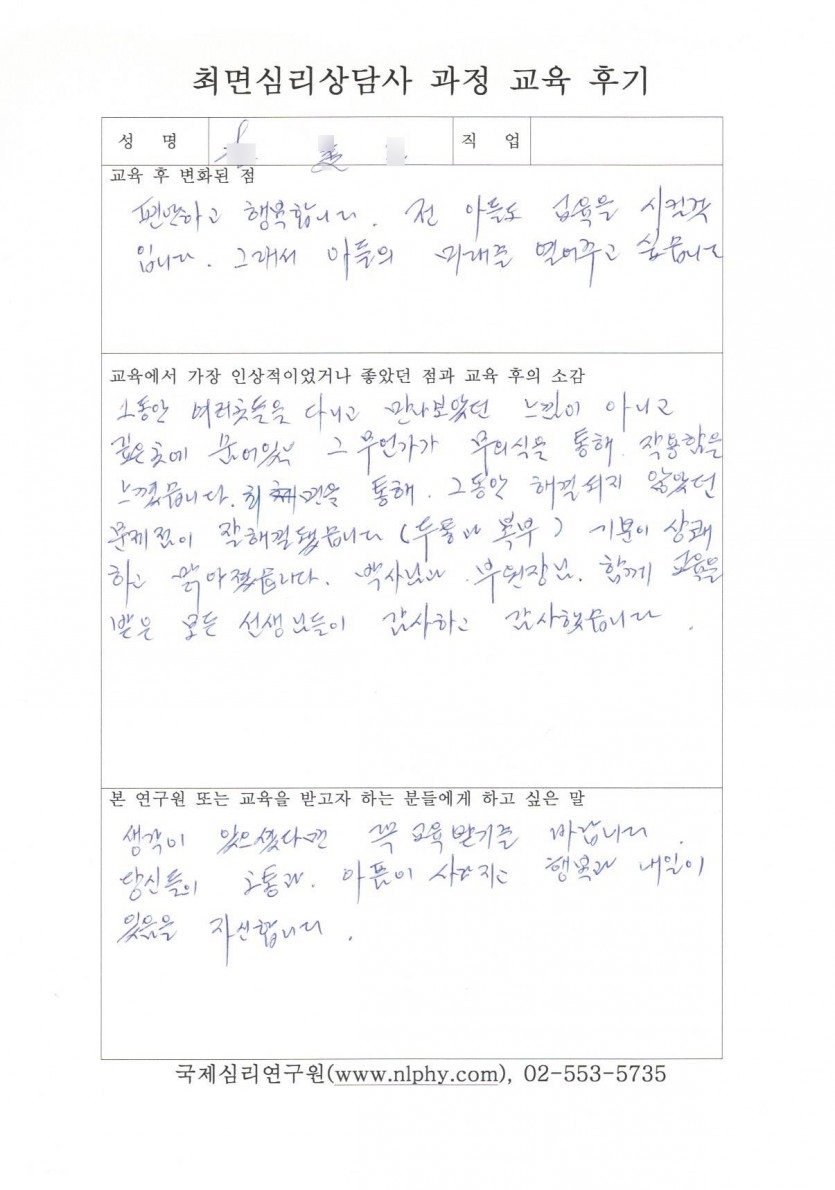 최면심리상담사 과정 교육 후기
성 명
직 업
교육 후 변화된 점
편안하고 행복합니다. 전 아들도 교육을 시킬것
입니다. 그래서 아들의 미래를 열어주고 싶습니다
교육에서 가장 인상적이었거나 좋았던 점과 교육 후의 소감
그동안 여러곳들을 다니고 만나보았던 느낌이 아니고
깊은곳에 묻어있는 그 무언가가 무의식을 통해 작용함을
느꼈습니다. 최면을 통해. 그동안 해결되지 않았던
문제점이 잘해결됐습니다 (두통과 복부) 기분이 상쾌
하고 맑아졌습니다. 박사님과 부원장님. 함께 교육을
받은 모든 선생님들이 감사하고 감사했습니다.
본 연구원 또는 교육을 받고자 하는 분들에게 하고 싶은 말
생각이 있으셨다면 꼭 교육받기를 바랍니다.
당신들의 고통과. 아픔이 사라지고 행복과 내일이
있음을 자신합니다.
국제심리연구원(www.nlphy.com), 02-553-5735